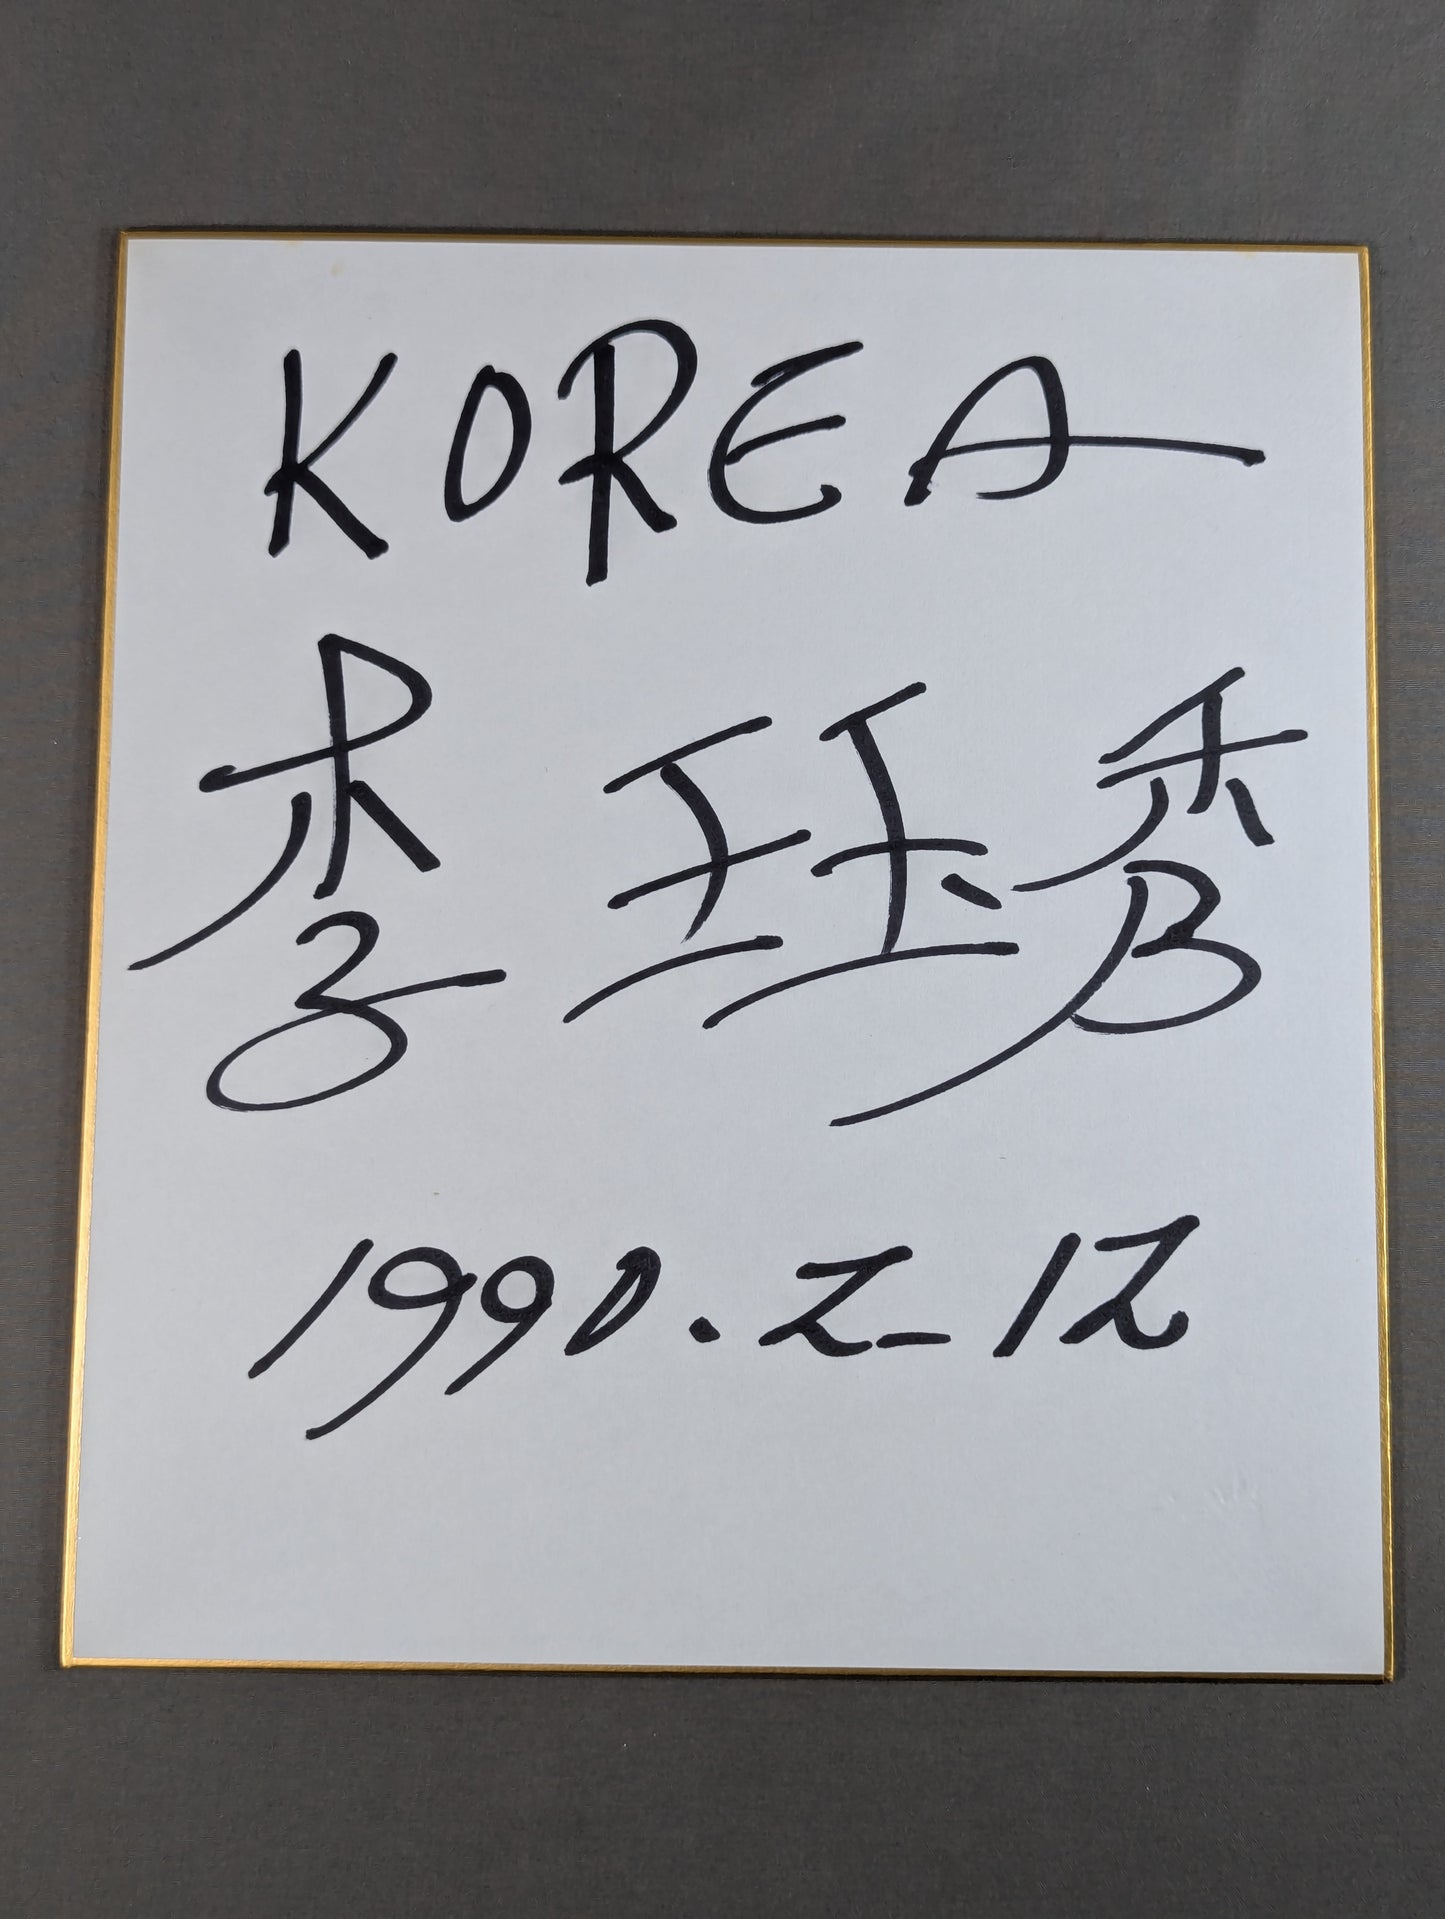 KOREA
李珏秀
1990.2-12